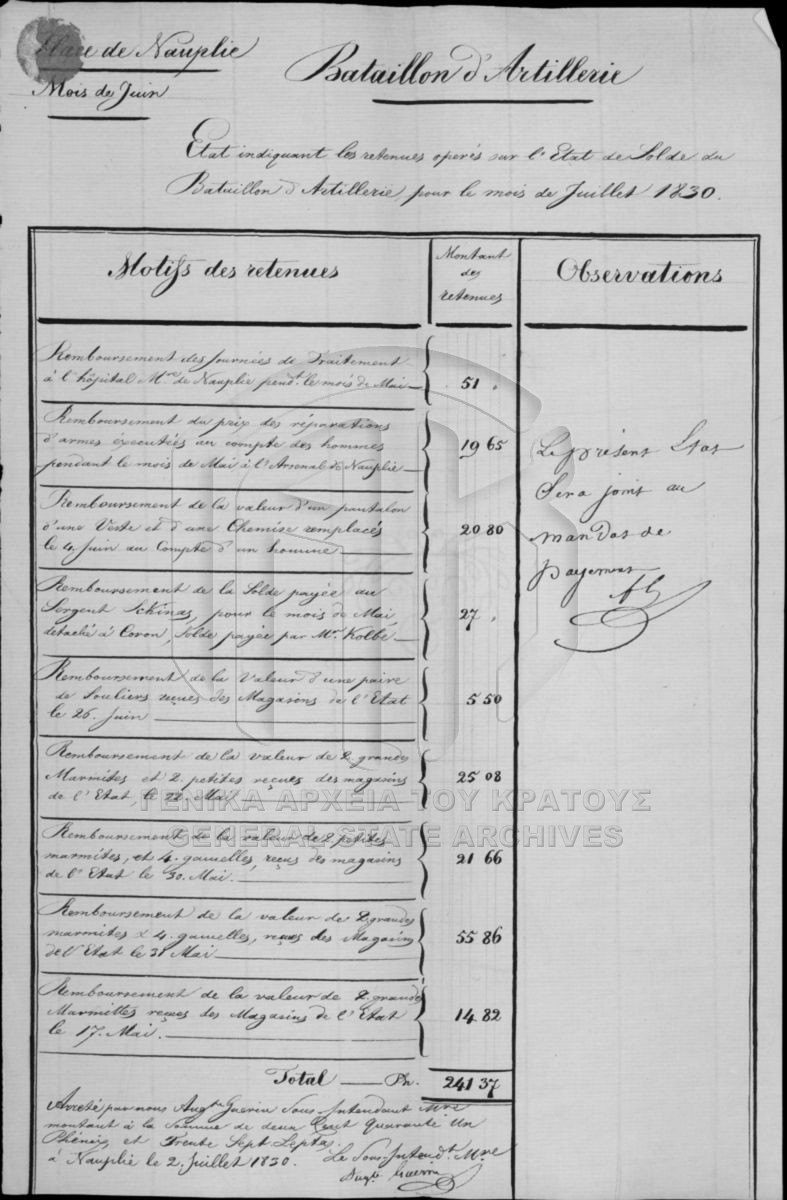 Place de Nauplie
Mois de Juin
Bataillon d'Artillerie
Etat indiquant les retenues operés sur l'Etat de Solde du
Bataillon d'Artillerie, pour le mois de Juillet 1830.
Motifs des retenues
Montant
des
retenues
Observations
Remboursement des Journées de Traitement
à l'hôpital Mre de Nauplie pendt le mois de Mai
51 "
Remboursement du prix des réparations
d'armes éxécutées au compte des hommes
pendant le mois de Mai à l'Arsenal de Nauplie
19 65
Remboursement de la valeur d'un pantalon
d'une Veste et d'une Chemise remplacés
le 4 Juin au Compte d'un homme
20 80
Remboursement de la Solde payée au
Sergent Schinas, pour le mois de Mai,
détaché à Coron, Solde payée par Mr Kolbe
27 "
Remboursement de la Valeur d'une paire
de Souliers reçues des Magasins de l'Etat
le 26. Juin
5 50
Remboursement de la valeur de 2. grandes
Marmites et 2. petites reçues des magasins
de l'Etat, le 22. Mai
25 08
Remboursement de la valeur de 2. petites
marmites, et 4. gamelles, reçus des magasins
de l'Etat le 30. Mai.
21 66
Remboursement de la valeur de 2. grandes
marmites & 4. gamelles, reçues des Magasins
de l'Etat le 31 Mai
55 86
Remboursement de la valeur de 2. grandes
Marmittes reçues des Magasins de l'Etat
le 17. Mai.
14 82
Total Ph. 241 37
Le présent Etat
Sera joint au
mandat de
payement
Arreté par nous Augte Guerin Sous Intendant Mre
montant à la Somme de deux Cent Quarante Un
Phénix, et Trente Sept Lepta.
à Nauplie le 2. Juillet 1830.
Le Sous-Intendt Mre
Augte Guerin
ΓΕΝΙΚΑ ΑΡΧΕΙΑ ΤΟΥ ΚΡΑΤΟΥΣ
GENERAL STATE ARCHIVES